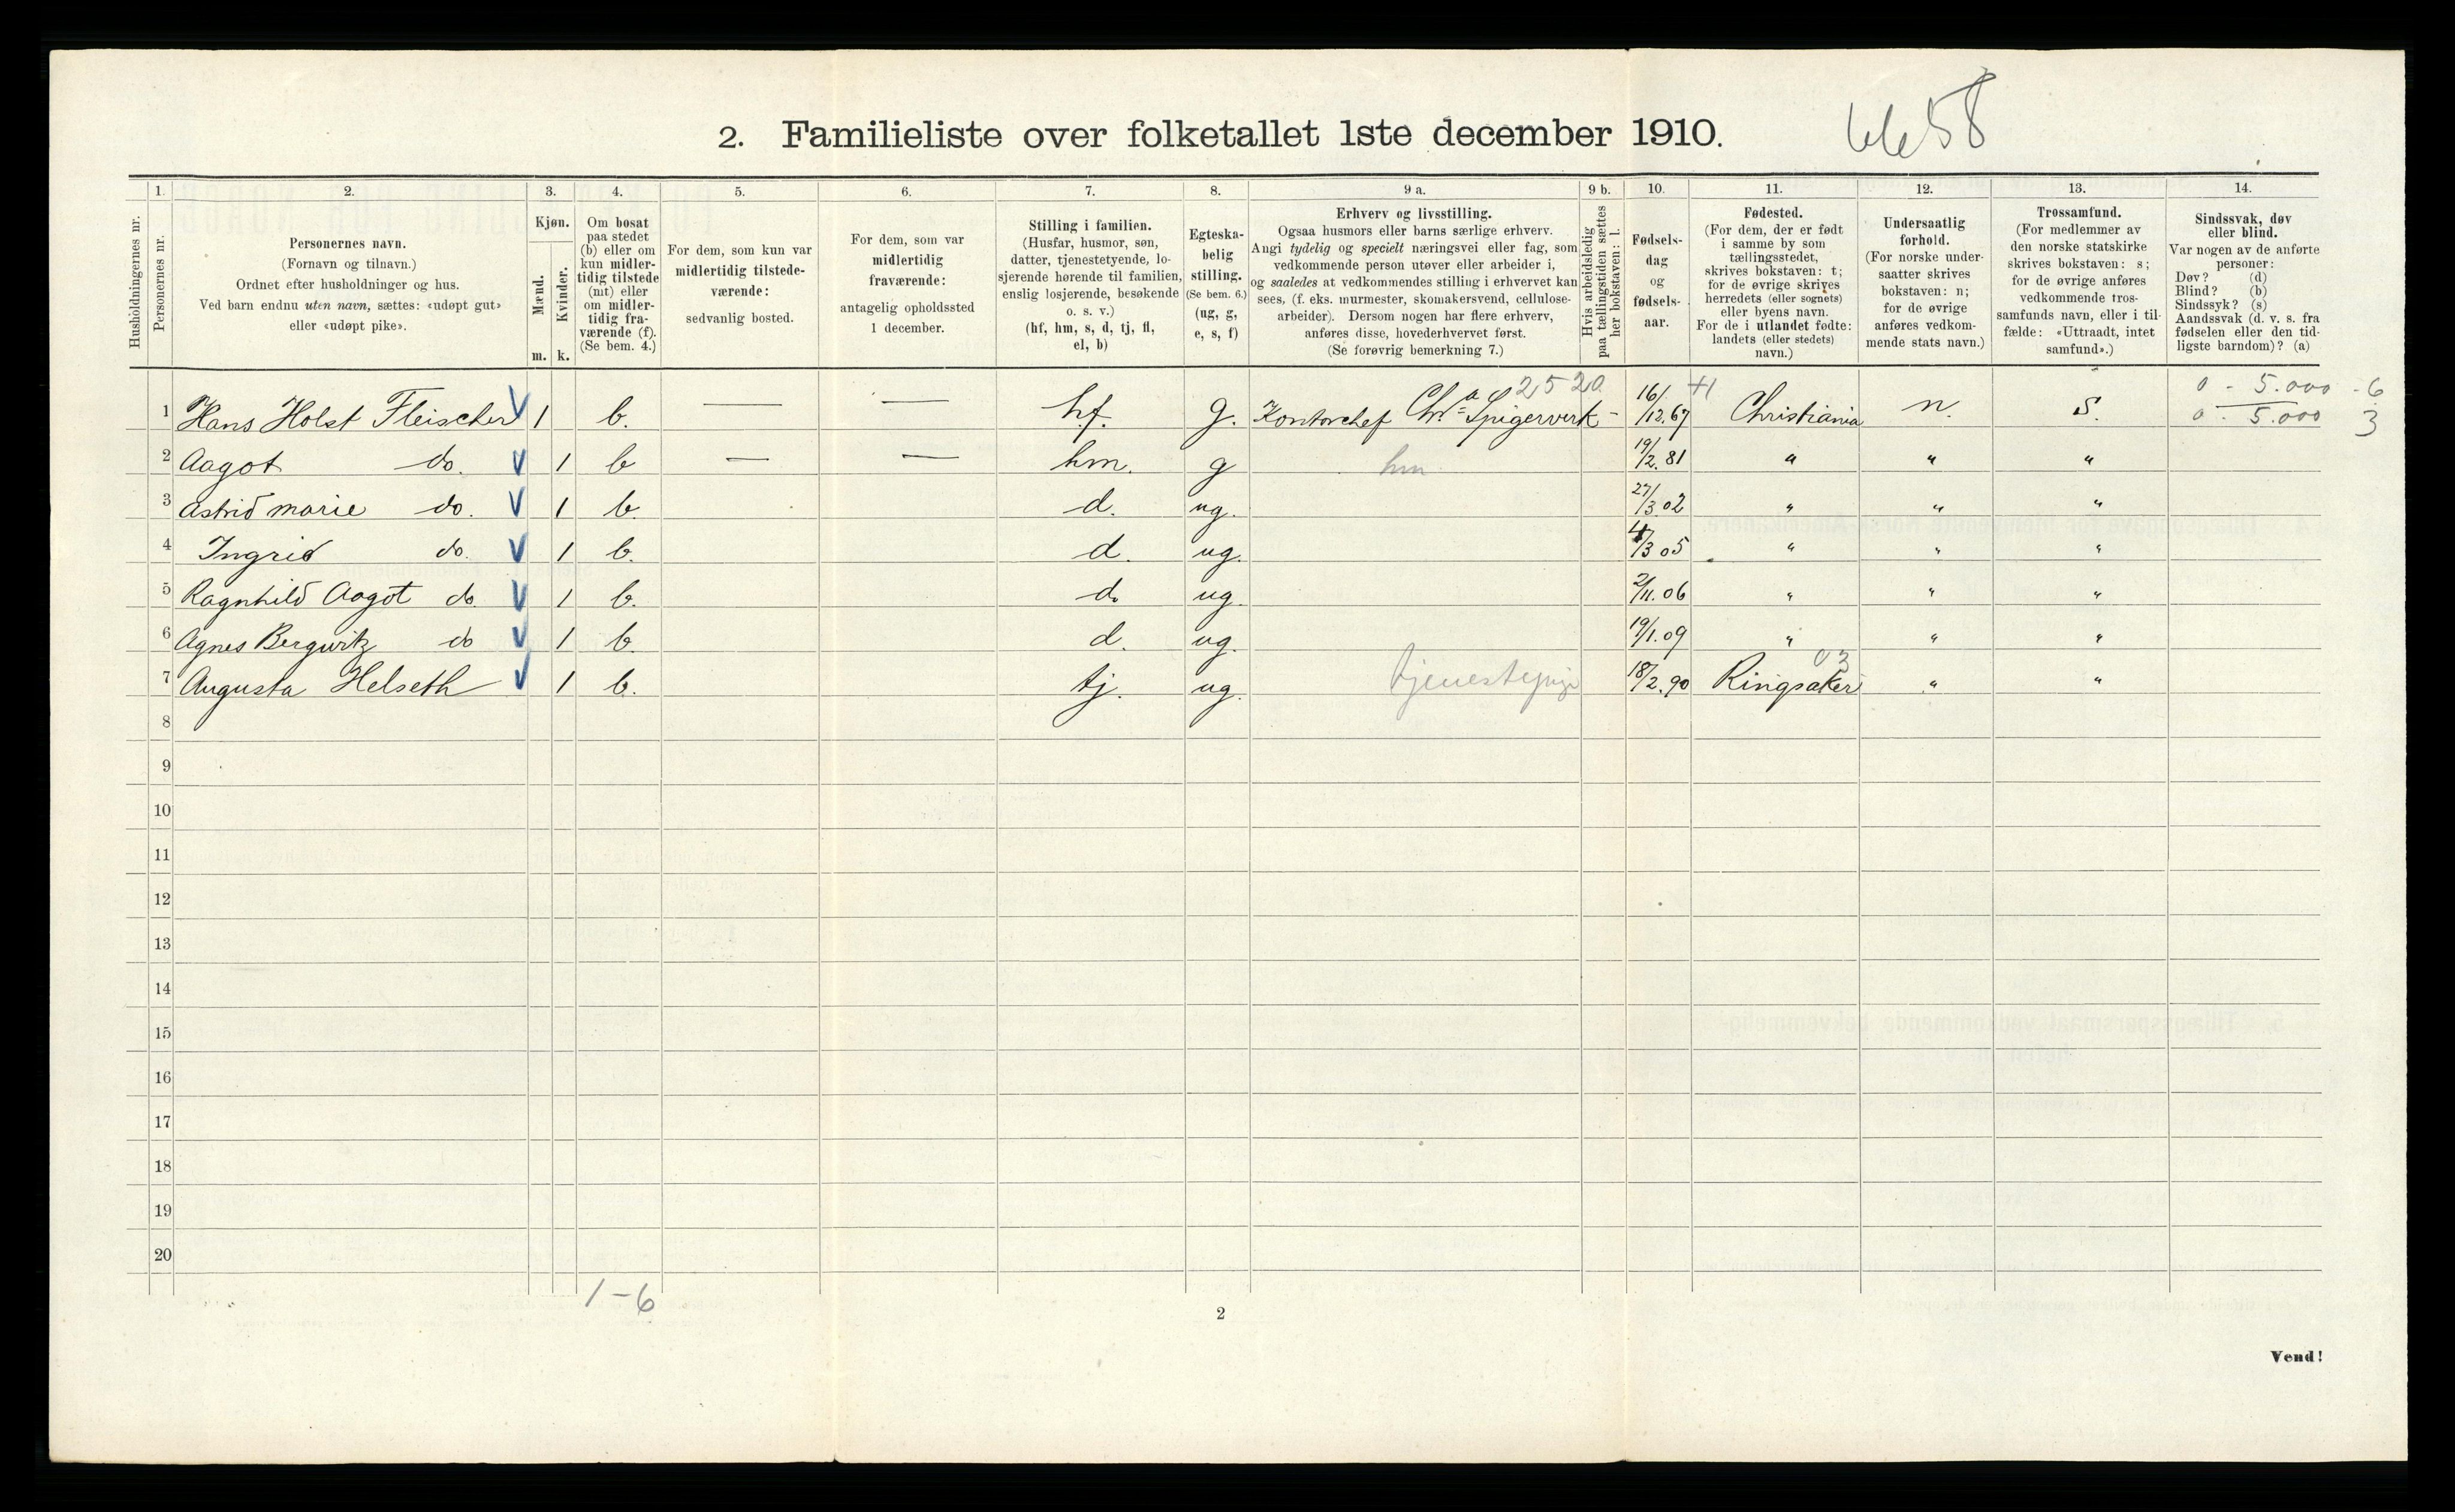 2. Familieliste over folketallet 1ste december 1910.
1. 2. 3. 4. 5. 6. 7. 8. 9 a. 9 b. 10. 11. 12. 13. 14.
Husholdningernes nr.
Personernes nr.
Personernes navn.
(Fornavn og tilnavn.)
Ordnet efter husholdninger og hus.
Ved barn endnu uten navn, sættes: «udøpt gut»
eller «udøpt pike».
Kjøn.
Mænd.
Kvinder.
m. k.
Om bosat
paa stedet
(b) eller om
kun midler-
tidig tilstede
(mt) eller
om midler-
tidig fra-
værende (f).
(Se bem. 4.)
For dem, som kun var
midlertidig tilstede-
værende:
sedvanlig bosted.
For dem, som var
midlertidig
fraværende:
antagelig opholdssted
1 december.
Stilling i familien.
(Husfar, husmor, søn,
datter, tjenestetyende, lo-
sjerende hørende til familien,
enslig losjerende, besøkende
o. s. v.)
(hf, hm, s, d, tj, fl,
el, b)
Egteska-
belig
stilling.
(Se bem. 6.)
(ug, g,
e, s, f)
Erhverv og livsstilling.
Ogsaa husmors eller barns særlige erhverv.
Angi tydelig og specielt næringsvei eller fag, som
vedkommende person utøver eller arbeider i,
og saaledes at vedkommendes stilling i erhvervet kan
sees, (f. eks. murmester, skomakersvend, cellulose-
arbeider). Dersom nogen har flere erhverv,
anføres disse, hovederhvervet først.
(Se forøvrig bemerkning 7.)
Hvis arbeidsledig
paa tællingstiden sættes
her bokstaven: l.
Fødsels-
dag
og
fødsels-
aar.
Fødested.
(For dem, der er født
i samme by som
tællingsstedet,
skrives bokstaven: t;
for de øvrige skrives
herredets (eller sognets)
eller byens navn.
For de i utlandet fødte:
landets (eller stedets)
navn.)
Undersaatlig
forhold.
(For norske under-
saatter skrives
bokstaven: n;
for de øvrige
anføres vedkom-
mende stats navn.)
Trossamfund.
(For medlemmer av
den norske statskirke
skrives bokstaven: s;
for de øvrige anføres
vedkommende tros-
samfunds navn, eller i til-
fælde: «Uttraadt, intet
samfund».)
Sindssvak, døv
eller blind.
Var nogen av de anførte
personer:
Døv? (d)
Blind? (b)
Sindssyk? (s)
Aandssvak (d. v. s. fra
fødselen eller den tid-
ligste barndom)? (a)
2520 0 - 5.000 - 6
1 Hans Holst Fleischer V 1 b. — — hf. g. Kontorchef Chra Spigerverk - 16/12.67 Christiania n. S. 0 - 5.000 3
2 Aagot do. V 1 b — — hm. g hm 19/2.81 " " "
3 Astrid marie do. V 1 b. d. ug. 27/3.02 " " "
4 Ingrid do. V 1 b. d. ug. /3 05 " " "
5 Ragnhild Aagot do. V 1 b. d. ug. 2/11.06 " " "
6 Agnes Bergwitz do V 1 b. d. ug. 19/1.09 " " "
03
7 Augusta Helseth V 1 b. tj. ug. 18/2.90 Ringsaker " "
8
9
10
11
12
13
14
15
16
17
18
19
20
1-6
2
Vend!